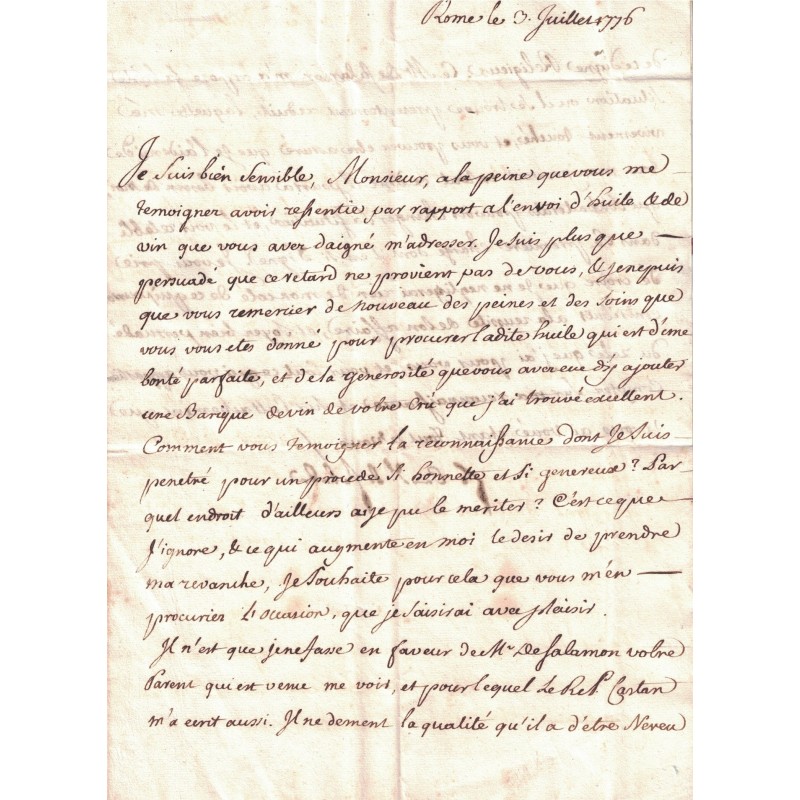 Rome le 3. Juillet 1776
Je Suis bien Sensible, Monsieur, a la peine que vous me
temoignez avoir ressentie par rapport a l'envoi d'huile & de
vin que vous avez daigné m'adresser. Je suis plus que —
persuadé que ce retard ne provient pas de vous, & je ne puis
que vous remercier de nouveau des peines et des Soins que
vous vous etes donné pour procurer ladite huile qui est d'une
bonté parfaite, et de la generosité que vous avez eue d'y ajouter
une Barique de vin de votre Crû que j'ai trouvé excellent.
Comment vous temoigner la reconnaissance dont Je Suis
penetré pour un procedé Si honnette et Si genereux? Par
quel endroit d'ailleurs ai je pu le meriter? C'est ce que
J'ignore, & ce qui augmente en moi le desir de prendre
ma revanche, Je Souhaite pour cela que vous m'en —
procuriez l'occasion, que je Saisirai avec plaisir.
Il n'est que je ne fasse en faveur de Mr. de Salamon votre
Parent qui est venu me voir, et pour lequel Le Rd P. Castan
m'a ecrit aussi. Il ne dement la qualité qu'il a d'être Neveu